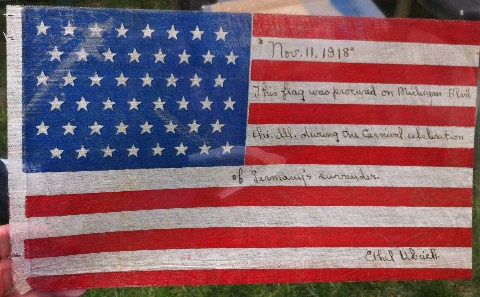 "Nov. 11, 1918"
This flag was procured on Michigan Blvd
Chi. Ill. during the Carnival celebration
of Germany's surrender.
Ethel Ulrich.